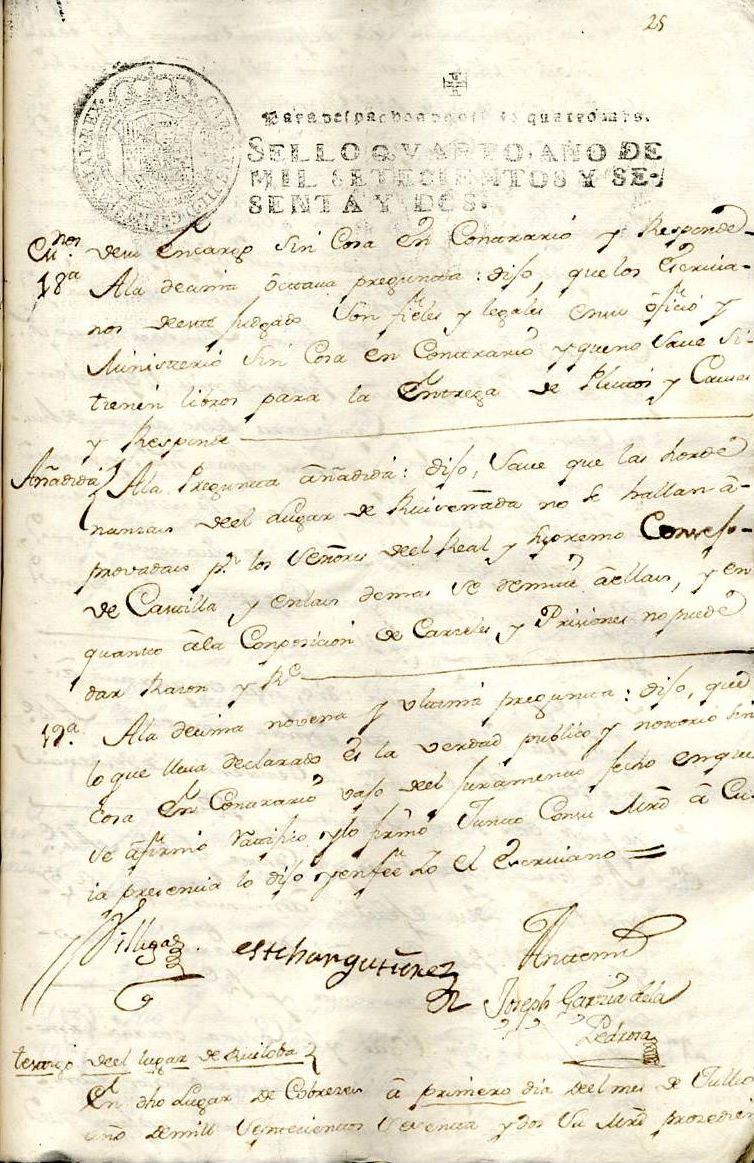 25
Para despachos de oficio quatro mrs.
SELLO QVARTO, AÑO DE
MIL SETECIENTOS Y SE-
SENTA Y DOS.
de su encargo sin Cosa en Contrario y Responde
18ª Ala decima Octava pregunta: dijo, que los Escriva-
nos de este Juzgado son fieles y legales en su ôficio y
Ministerio sin Cosa en Contrario y que no save si
tienen libros para la Entrega de Pleitos y Causas
y Responde
Añadida Ala Pregunta âñadida: dijo, save que las horde
nanzas deel Lugar de Ruiseñada no se hallan â-
provadas pr. los Señores deel Real y Supremo Consejo
de Castilla y en las demas se remite âellas, y en
quanto âla Conposicion de Carzeles y Prisiones no puede
dar Razon y Re
19ª Ala decima novena y ultima pregunta: dijo, que
lo que lleva declarado Es la verdad publico y notorio sin
Cosa en Contrario vajo del Juramento fecho en que
se âfirmo Ratifico y lo firmo Junto Con su Mrd â Cu-
ia presencia lo dijo y en fee de ello El Escrivano
Villegas
estebangutierrez
Antemi
Joseph Garzia dela
Pedrosa
testigo deel lugar de Ruiloba
En dho Lugar de Cobreces â primero dia deel mes de Jullio
año de mill setecientos sesenta y dos Su Mrd